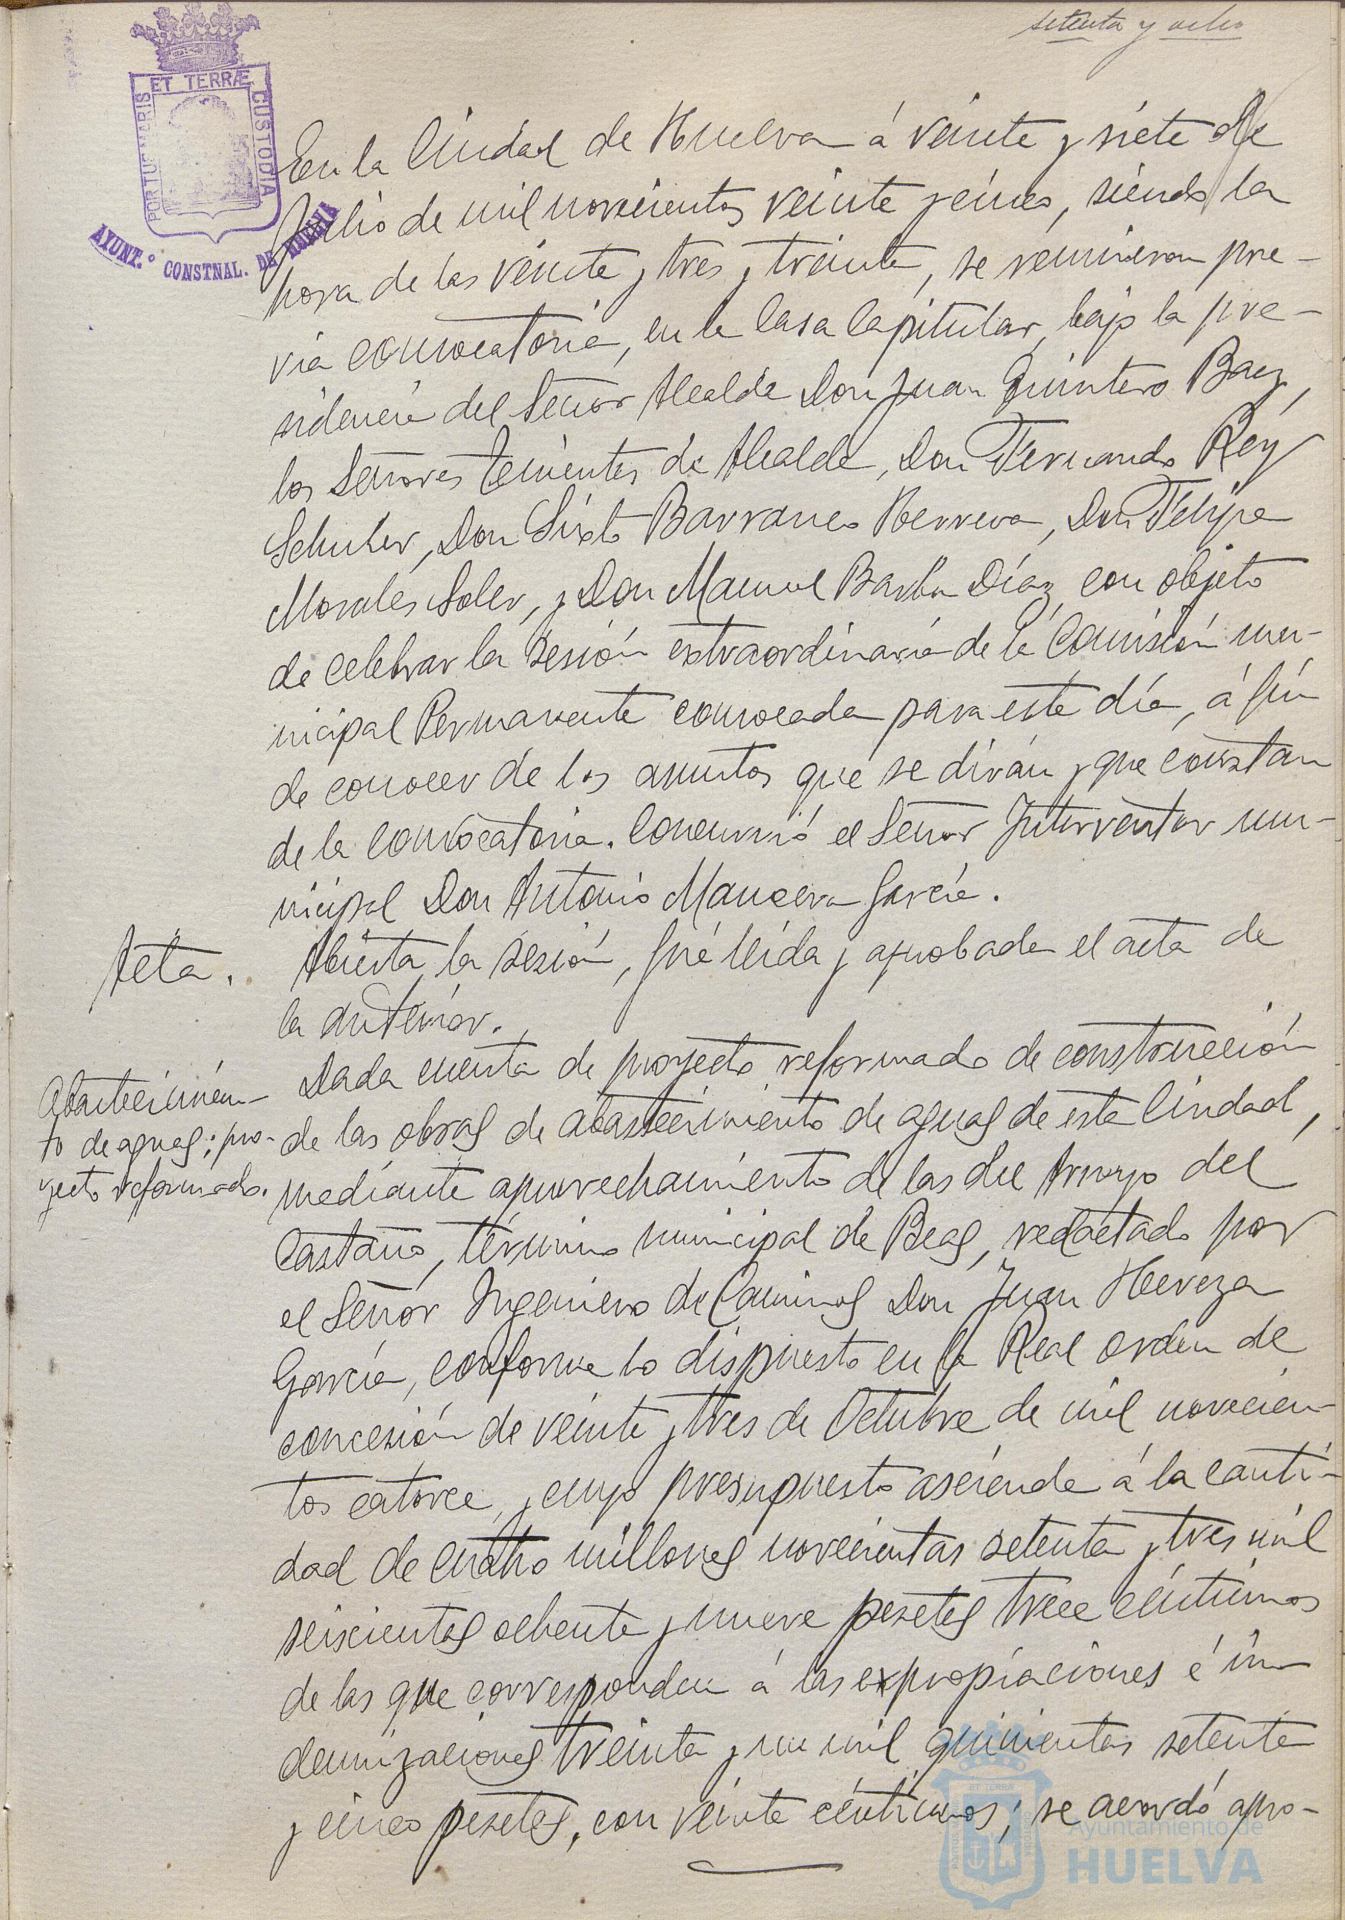 setenta y ocho
PORTUS MARIS ET TERRÆ CUSTODIA
AYUNT.º CONSTNAL. DE HUELVA
En la Ciudad de Huelva á veinte y siete de
Julio de mil novecientos veinte y cinco, siendo la
hora de las veinte y tres y treinta, se reunieron pre-
via convocatoria, en la Casa Capitular, bajo la pre-
sidencia del Señor Alcalde Don Juan Quintero Baez,
los Señores Tenientes de Alcalde, Don Fernando Rey
Schuler, Don Sixto Barranco Herrera, Don Felipe
Morales Soler, y Don Manuel Barba Díaz, con objeto
de celebrar la sesión extraordinaria de la Comisión mu-
nicipal Permanente convocada para este día, á fín
de conocer de los asuntos que se dirán y que constan
de la convocatoria. Concurrió el Señor Interventor mu-
nicipal Don Antonio Mancera García.
Acta.
Abierta la sesión, fué leída y aprobada el acta de
la anterior.
Abastecimien-
to de aguas; pro-
yecto reformado.
Dada cuenta de proyecto reformado de construcción
de las obras de abastecimiento de aguas de esta Ciudad,
mediante aprovechamiento de las del Arroyo del
Castaño, término municipal de Beas, redactado por
el Señor Ingeniero de Caminos Don Juan Hereza
García, conforme lo dispuesto en la Real orden de
concesión de veinte y tres de Octubre de mil novecien-
tos catorce, y cuyo presupuesto asciende á la canti-
dad de cuatro millones novecientas setenta y tres mil
seiscientas ochenta y nueve pesetas trece céntimos
de las que corresponden á las expropiaciones é in-
demnizaciones treinta y un mil quinientas setenta
y cinco pesetas, con veinte céntimos; se acordó apro-
Ayuntamiento de
HUELVA